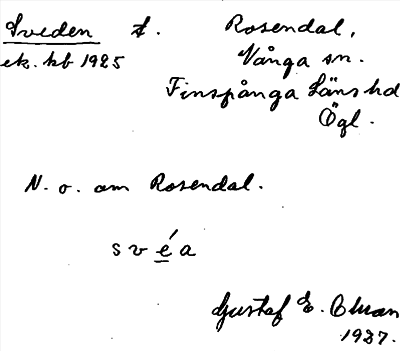 Sveden t. Rosendal,
ek. kb 1925 Vånga sn.
Finspånga Läns hd
Ögl.
N. o. om Rosendal.
svéa
Gustaf E. Ohman
1927.